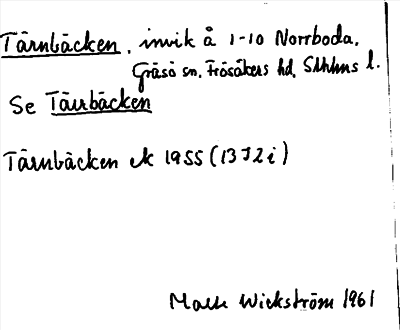 Tärnbäcken, invik å 1-10 Norrboda,
Gräsö sn, Frösåkers hd, Sthlms l.
Se Täırbäcken
Tärnbäcken ek 1955 (13 I 2 i)
Wickström 1961